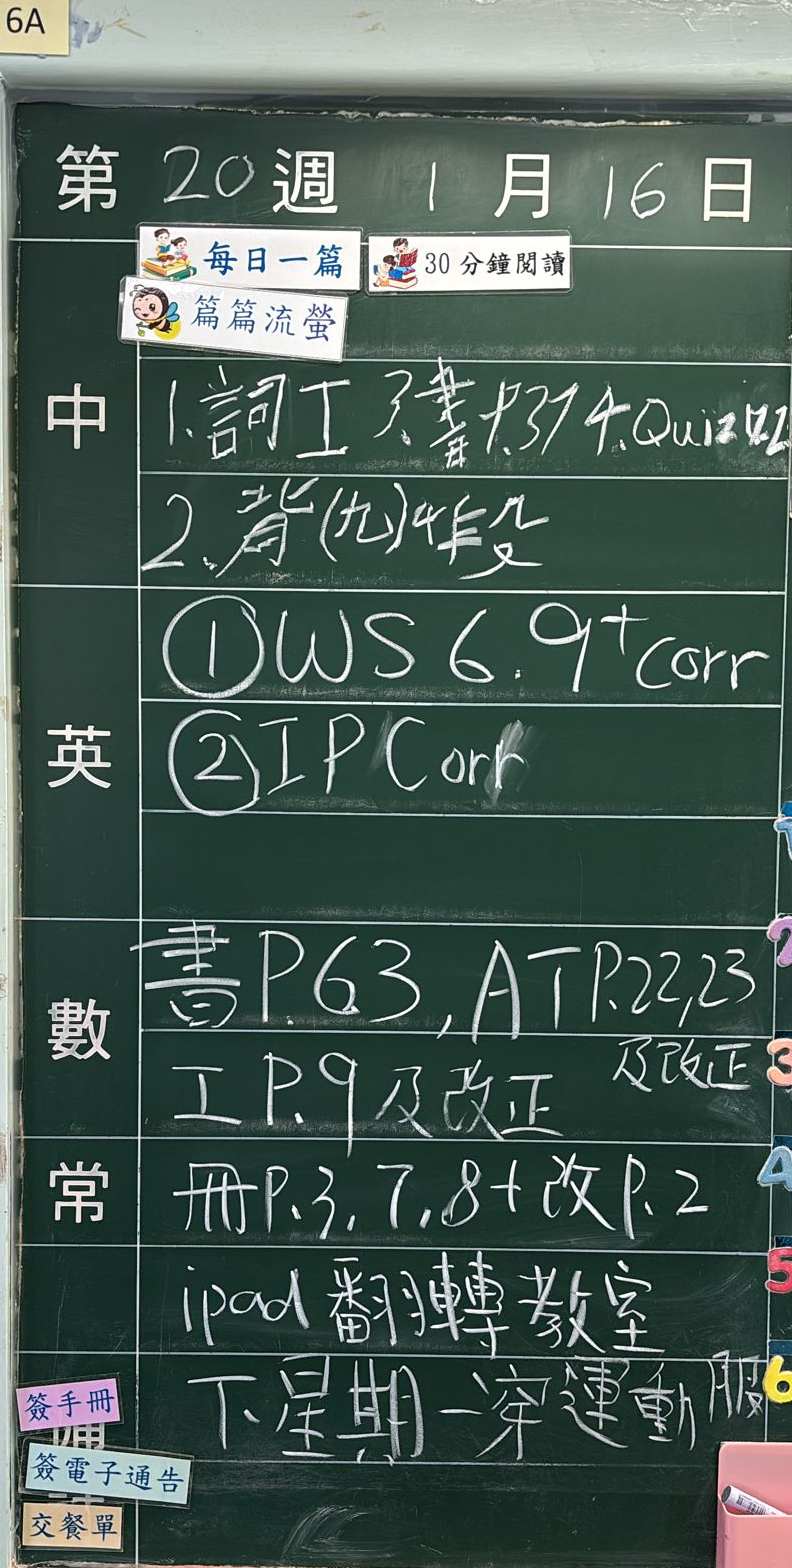 6A
第 20 週 1 月 16 日
每日一篇 30 分鐘閱讀
篇篇流螢
中
1.詞工 3.書P.37 4.Quiz
2.背(九)4段
英
①WS 6.9+corr
②IP Corr
數
書P.63,AT P.22,23
及改正
工 P.9 及改正
常
冊P.3,7,8+改P.2
ipad 翻轉教室
下星期一穿運動服
簽手冊
簽電子通告
交餐單
3
4
5
6